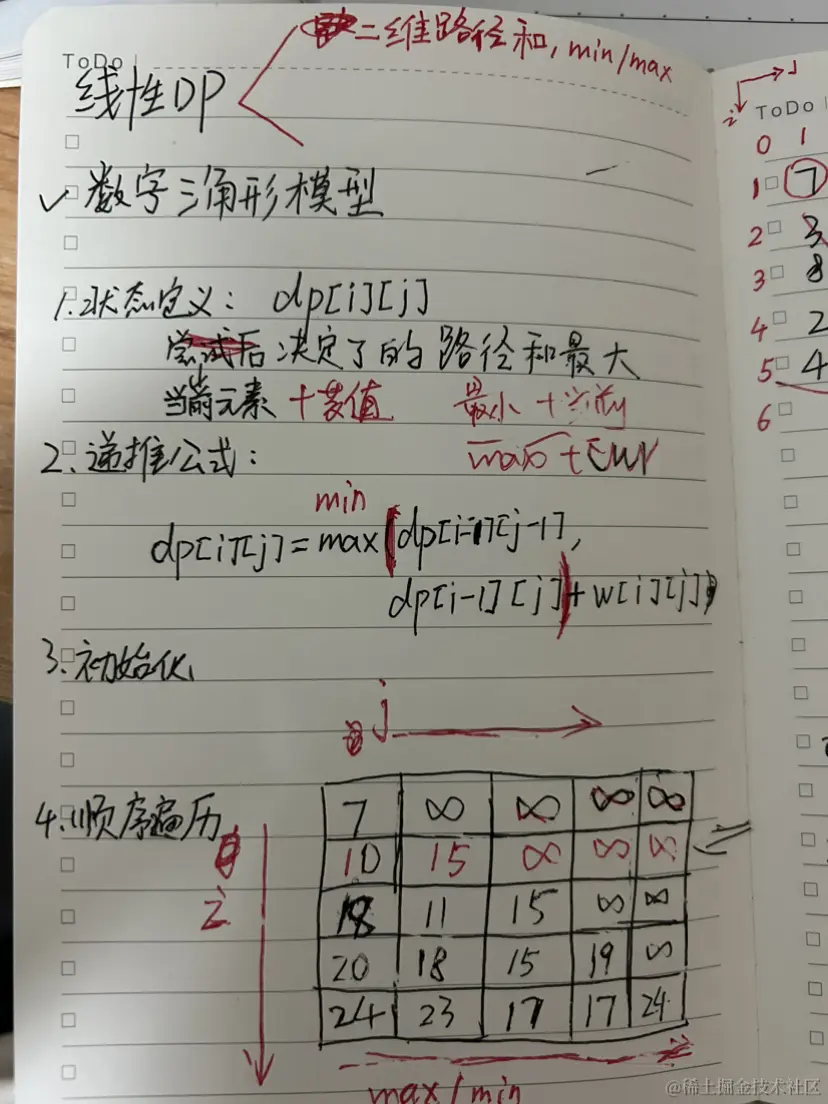 二维路径和, min/max
ToDo
线性DP
✓ 数字三角形模型
1. 状态定义: dp[i][j]
决定了的路径和最大
当前元素 最小
2. 递推公式:
max + cur
min
dp[i][j] = max(dp[i-1][j-1],
dp[i-1][j]) + w[i][j]
3. 初始化
j
4. 顺序遍历
i
7 ∞ ∞ ∞ ∞
10 15 ∞ ∞ ∞
18 11 15 ∞ ∞
20 18 15 19 ∞
24 23 17 17 24
max/min
j
i
ToDo
0 1
1 7
2 3
3 8
4 2
5 4
6
@稀土掘金技术社区